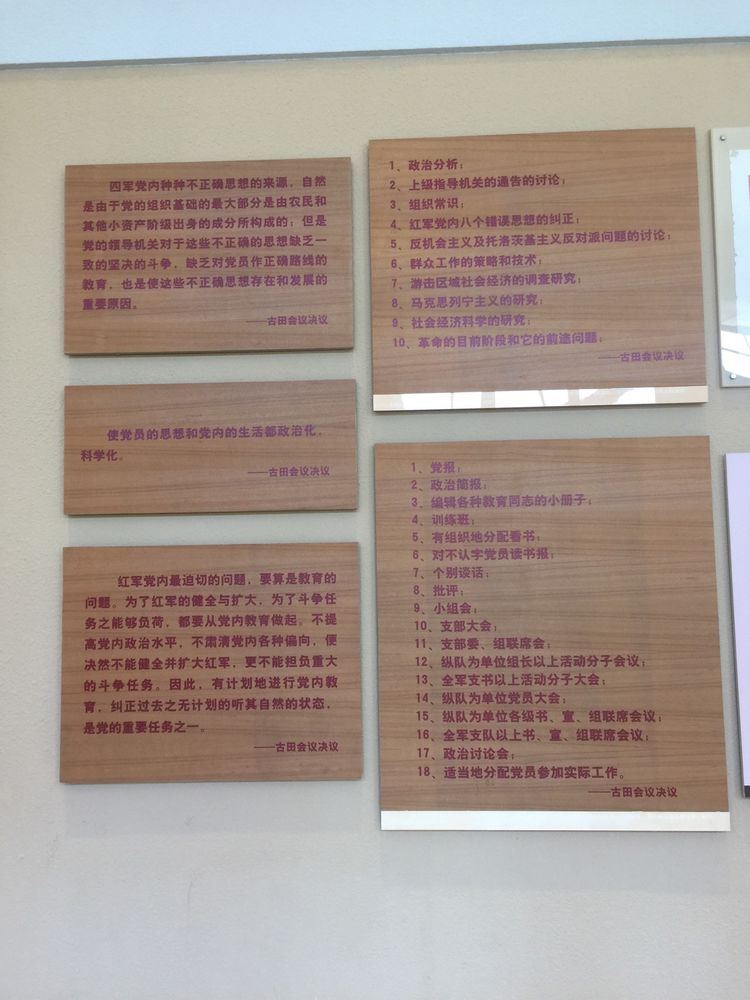 四军党内种种不正确思想的来源，自然
是由于党的组织基础的最大部分是由农民和
其他小资产阶级出身的成分所构成的；但是
党的领导机关对于这些不正确的思想缺乏一
致的坚决的斗争，缺乏对党员作正确路线的
教育，也是使这些不正确思想存在和发展的
重要原因。
——古田会议决议
使党员的思想和党内的生活都政治化，
科学化。
——古田会议决议
红军党内最迫切的问题，要算是教育的
问题。为了红军的健全与扩大，为了斗争任
务之能够负荷，都要从党内教育做起。不提
高党内政治水平，不肃清党内各种偏向，便
决然不能健全并扩大红军，更不能担负重大
的斗争任务。因此，有计划地进行党内教
育，纠正过去之无计划的听其自然的状态，
是党的重要任务之一。
——古田会议决议
1、政治分析；
2、上级指导机关的通告的讨论；
3、组织常识；
4、红军党内八个错误思想的纠正；
5、反机会主义及托洛茨基主义反对派问题的讨论；
6、群众工作的策略和技术；
7、游击区域社会经济的调查研究；
8、马克思列宁主义的研究；
9、社会经济科学的研究；
10、革命的目前阶段和它的前途问题。
——古田会议决议
1、党报；
2、政治简报；
3、编辑各种教育同志的小册子；
4、训练班；
5、有组织地分配看书；
6、对不认字党员读书报；
7、个别谈话；
8、批评；
9、小组会；
10、支部大会；
11、支部委、组联席会；
12、纵队为单位组长以上活动分子会议；
13、全军支书以上活动分子大会；
14、纵队为单位党员大会；
15、纵队为单位各级书、宣、组联席会议；
16、全军支队以上书、宣、组联席会议；
17、政治讨论会；
18、适当地分配党员参加实际工作。
——古田会议决议